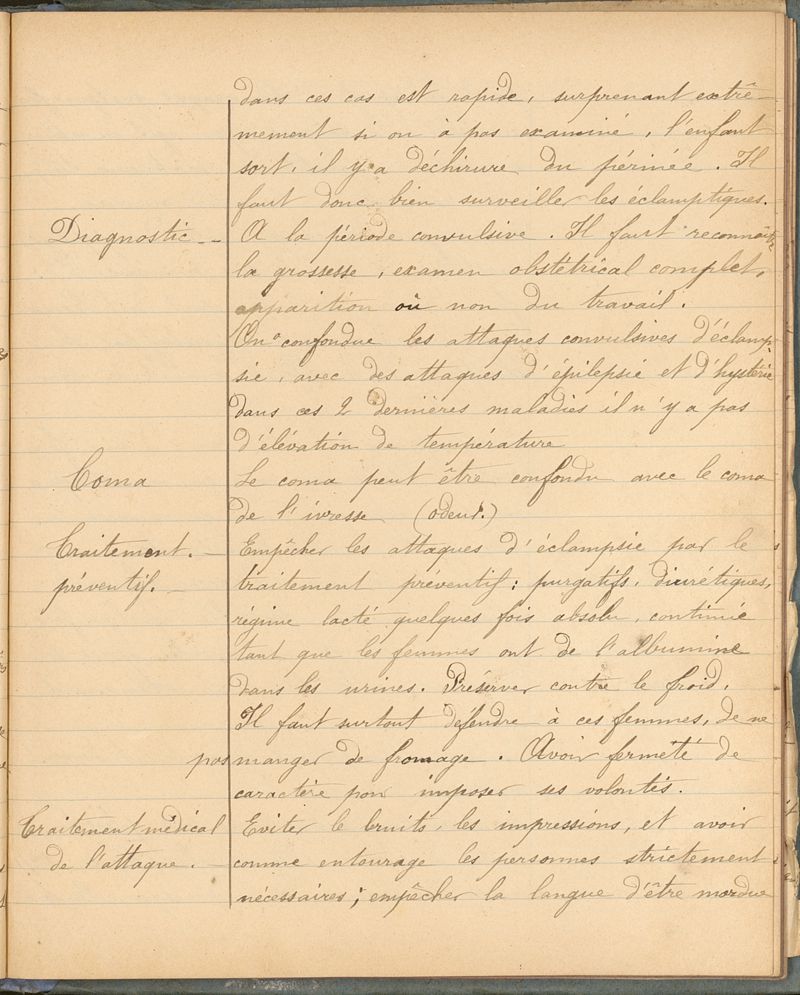 dans ces cas est rapide, surprenant extrê-
mement si on à pas examiné, l'enfant
sort, il y a déchirure du périnée. Il
faut donc bien surveiller les éclamptiques.
Diagnostic -- A la période convulsive. Il faut reconnaître
la grossesse, examen obstétrical complet,
apparition où non du travail.
On a confondue les attaques convulsives d'éclamp-
sie, avec des attaques d'épilepsie et d'hystérie
dans ces 2 dernières maladies il n'y a pas
d'élévation de température
Coma Le coma peut être confondu avec le coma
de l'ivresse (odeur.)
Traitement. — Empêcher les attaques d'éclampsie par le
préventif. — traitement préventif: purgatifs, diurétiques,
régime lacté quelques fois absolu, continué
tant que les femmes ont de l'albumine
dans les urines. Préserver contre le froid.
Il faut surtout défendre à ces femmes, de ne
pas manger de fromage. Avoir fermeté de
caractère pour imposer ses volontés.
Traitement médical Eviter le bruits, les impressions, et avoir
de l'attaque. — comme entourage les personnes strictement
nécessaires; empêcher la langue d'être mordue